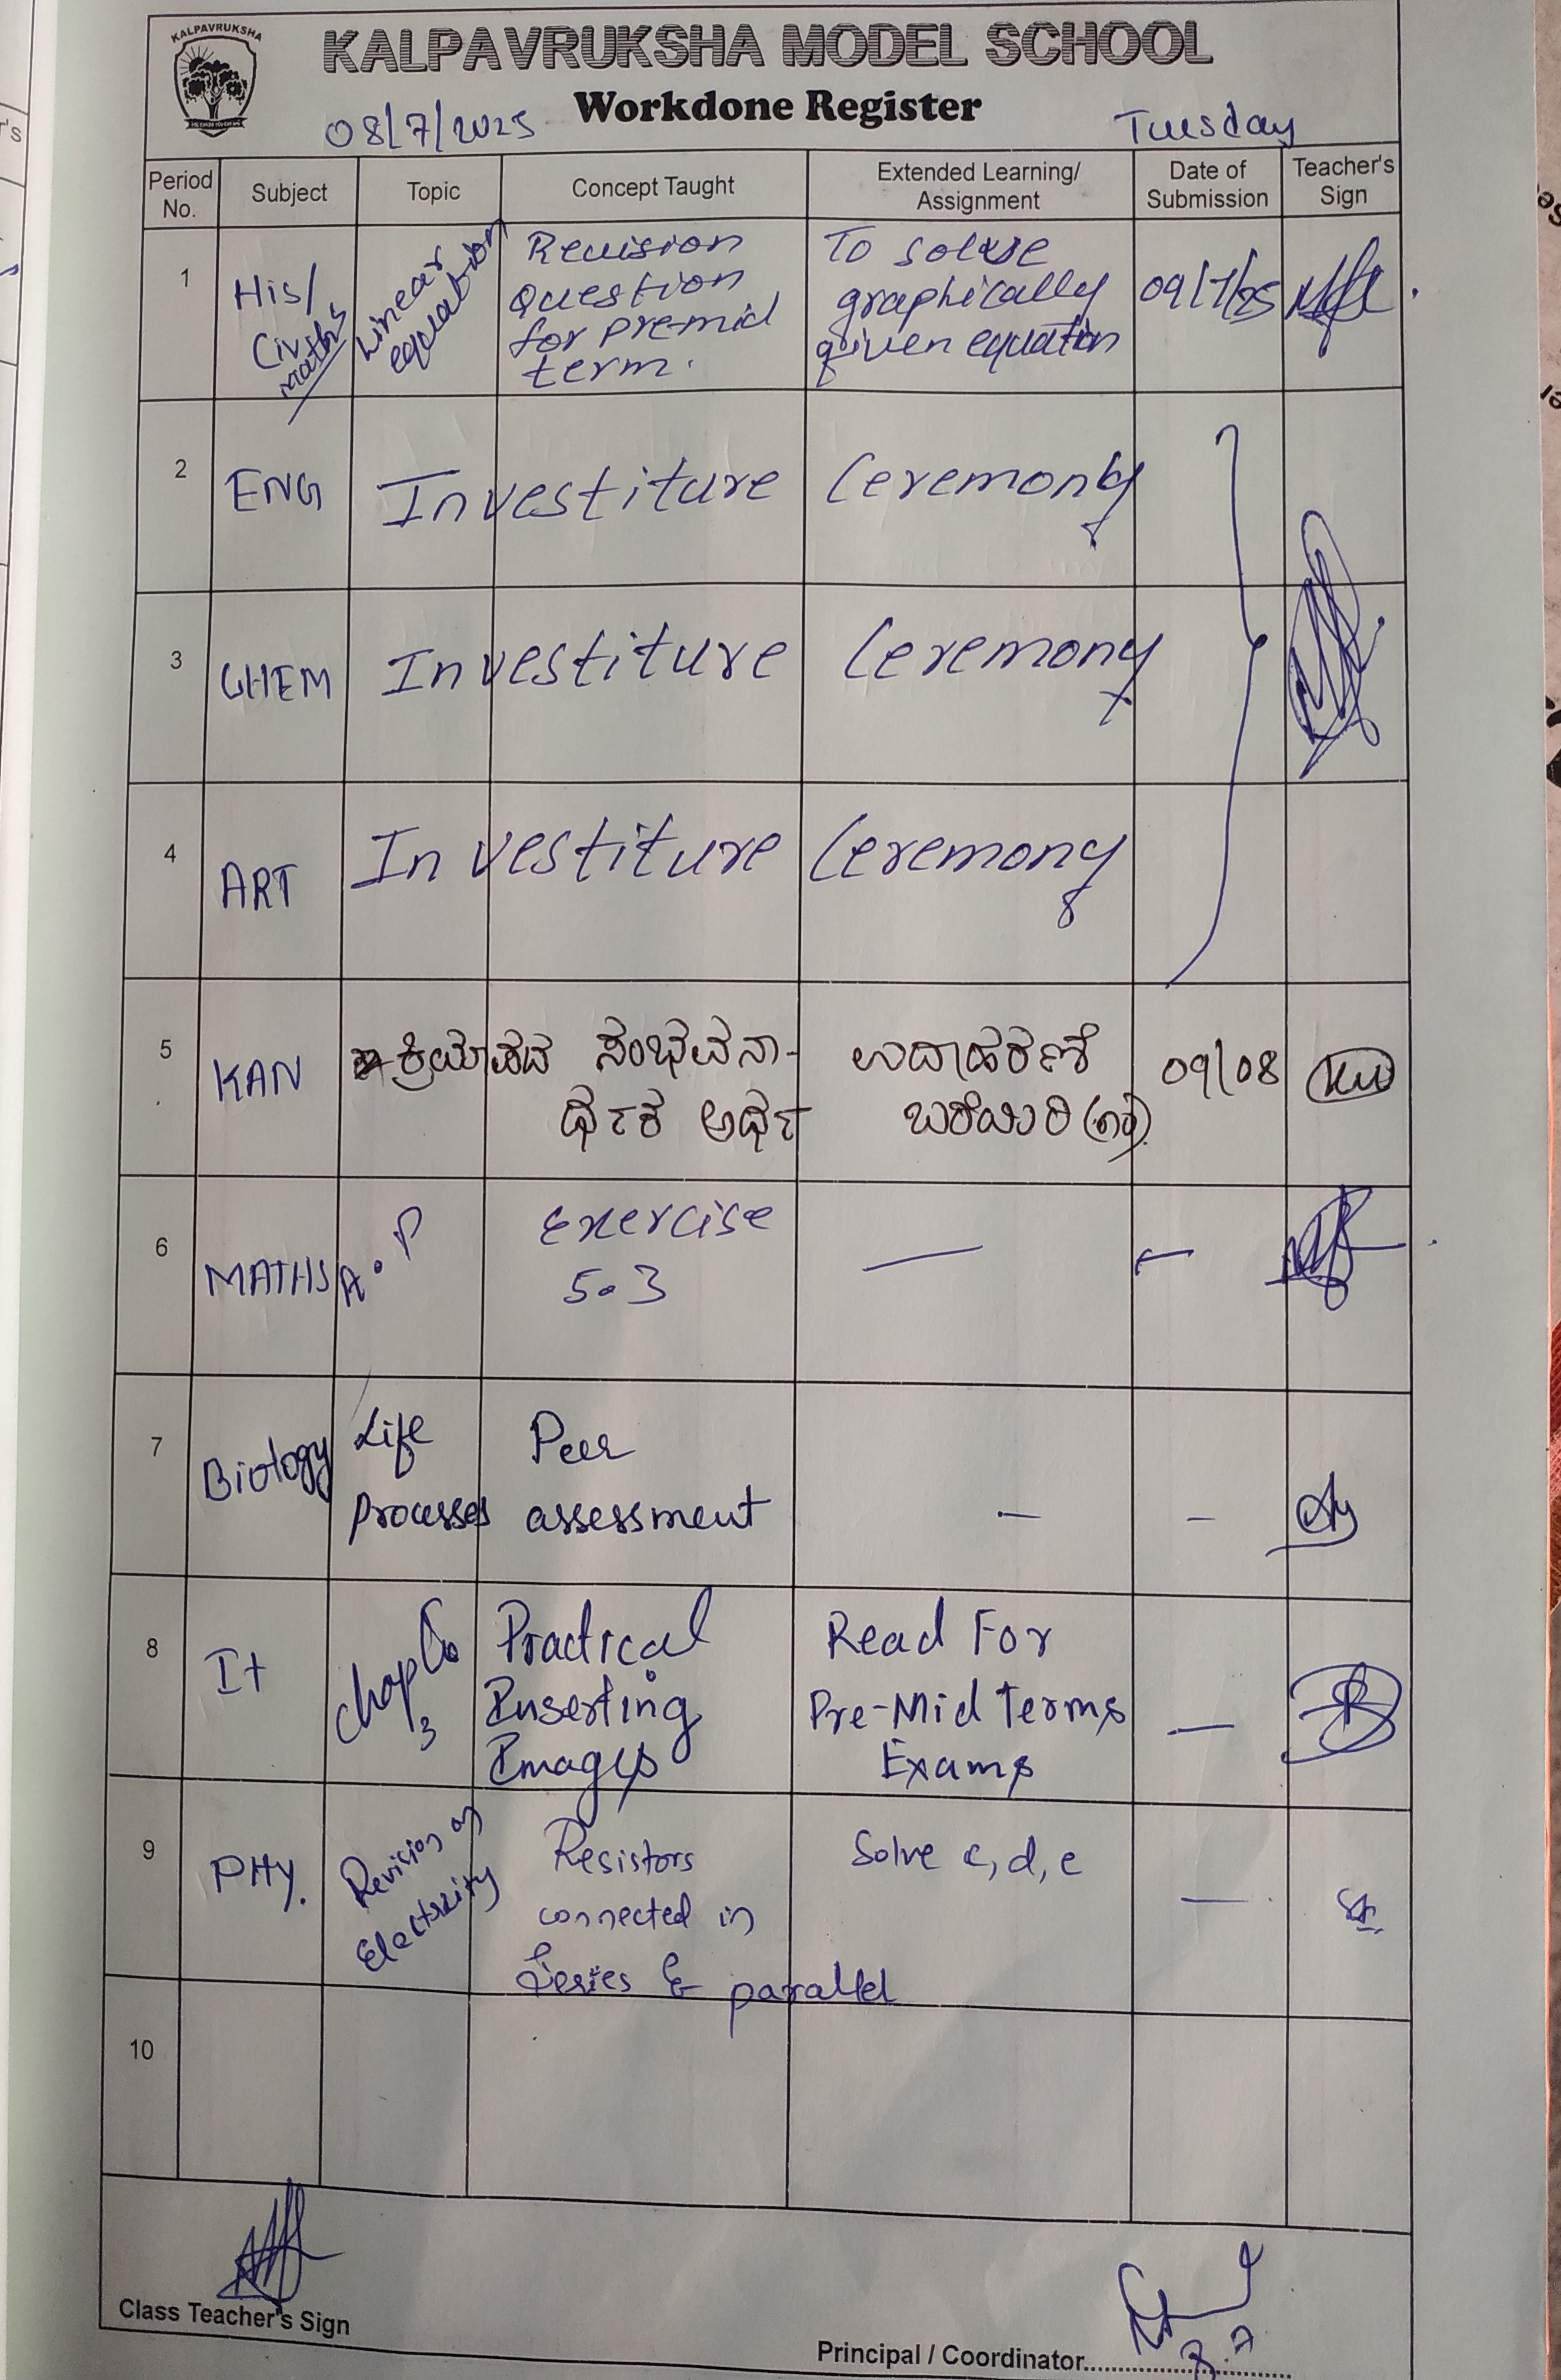 KALPAVRUKSHA
KALPAVRUKSHA MODEL SCHOOL
Workdone Register
08/7/2025 Tuesday
Period No. Subject Topic Concept Taught Extended Learning/ Assignment Date of Submission Teacher's Sign
1 His/ Civ maths Linear equation Revision question for pre-mid term. To solve graphically given equation 09/7/25
2 ENG Investiture Ceremony
3 CHEM Investiture Ceremony
4 ART Investiture Ceremony
5 KAN ಕ್ರಿಯಾಪದ ಸಂಭವನಾ- ರ್ಥಕ ಅರ್ಥ ಉದಾಹರಣೆ ಬರೆಯಿರಿ 09/08
6 MATHS A.P Exercise 5.3 — —
7 Biology Life processes Peer assessment — —
8 It Chap 3 Practical Inserting Images Read For Pre-Mid Terms Exams —
9 PHY. Revision of Electricity Resistors connected in Series & parallel Solve c, d, e —
10
Class Teacher's Sign
Principal / Coordinator
8.7